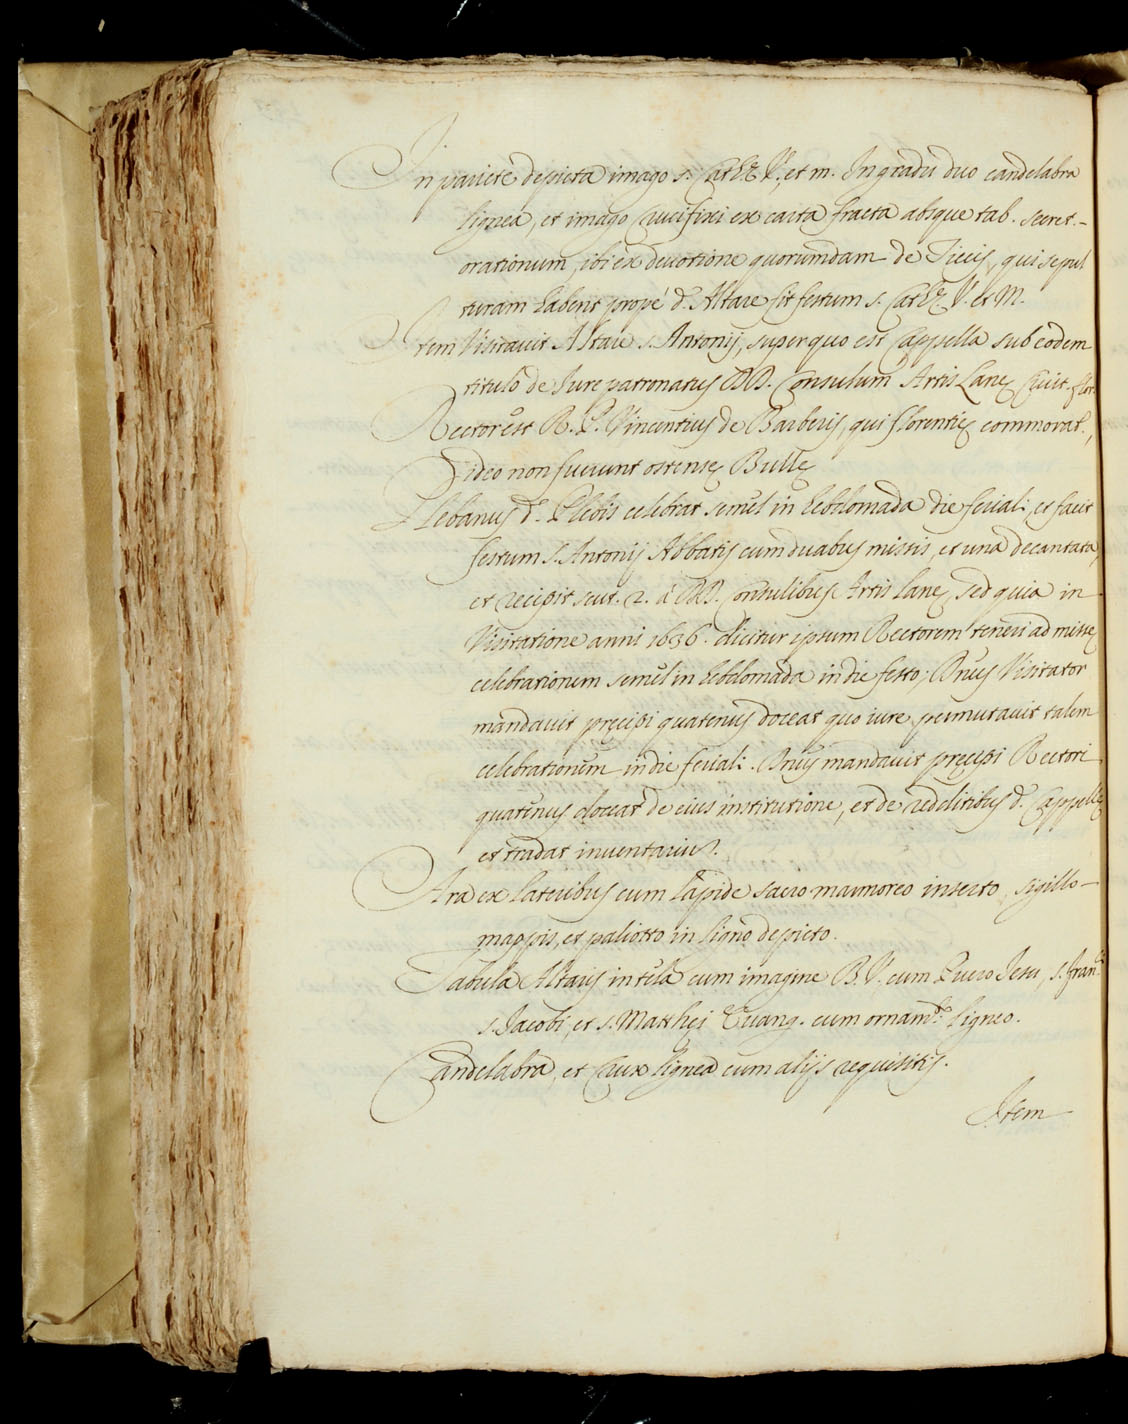 In pariete depicta imago s. Cath.ę V. et m. In gradu duo candelabra
lignea, et imago Crucifixi ex carta fracta absque tab. secret.
orationum, ibi ex devotione quorumdam de Ticcis, qui sepul
turam habent propè d. Altare fit festum s. Cath.ę V. et M.
Item Visitavit Altare s. Antonij, super quo est Cappella sub eodem
titulo de Iure patronatus DD. Consulum Artis Lanę Civit. flor.
Rector est R. P. Vincentius de Barberis, qui florentię commorat.,
ideo non fuerunt ostensę Bullę
Plebanus d. Plebis celebrat semel in hebdomada die feriali, et facit
festum s. Antonij Abbatis cum duabus missis, et una decantata,
et recipit scut. 2. à DD. Consulibus Artis Lanę, sed quia in
Visitatione anni 1636. dicitur ipsum Rectorem teneri ad missę
celebrationem semel in hebdomada in die festo; Dnus Visitator
mandavit pręcipi quatenus doceat quo iure permutavit talem
celebrationem in die feriali. Dnus mandavit pręcipi Rectori
quatenus doceat de eius institutione, et de redditibus d. Cappellę
et tradat inventarium.
Ara ex lateribus cum lapide sacro marmoreo inserto, sigillo
mappis, et paliotto in ligno depicto.
Tabula Altaris in tela cum imagine B. V. cum Puero Jesu, s. Fran.ci
s. Jacobi, et s. Matthęi Evang. cum ornam.to ligneo.
Candelabra, et Crux lignea cum alijs requisitis.
Item